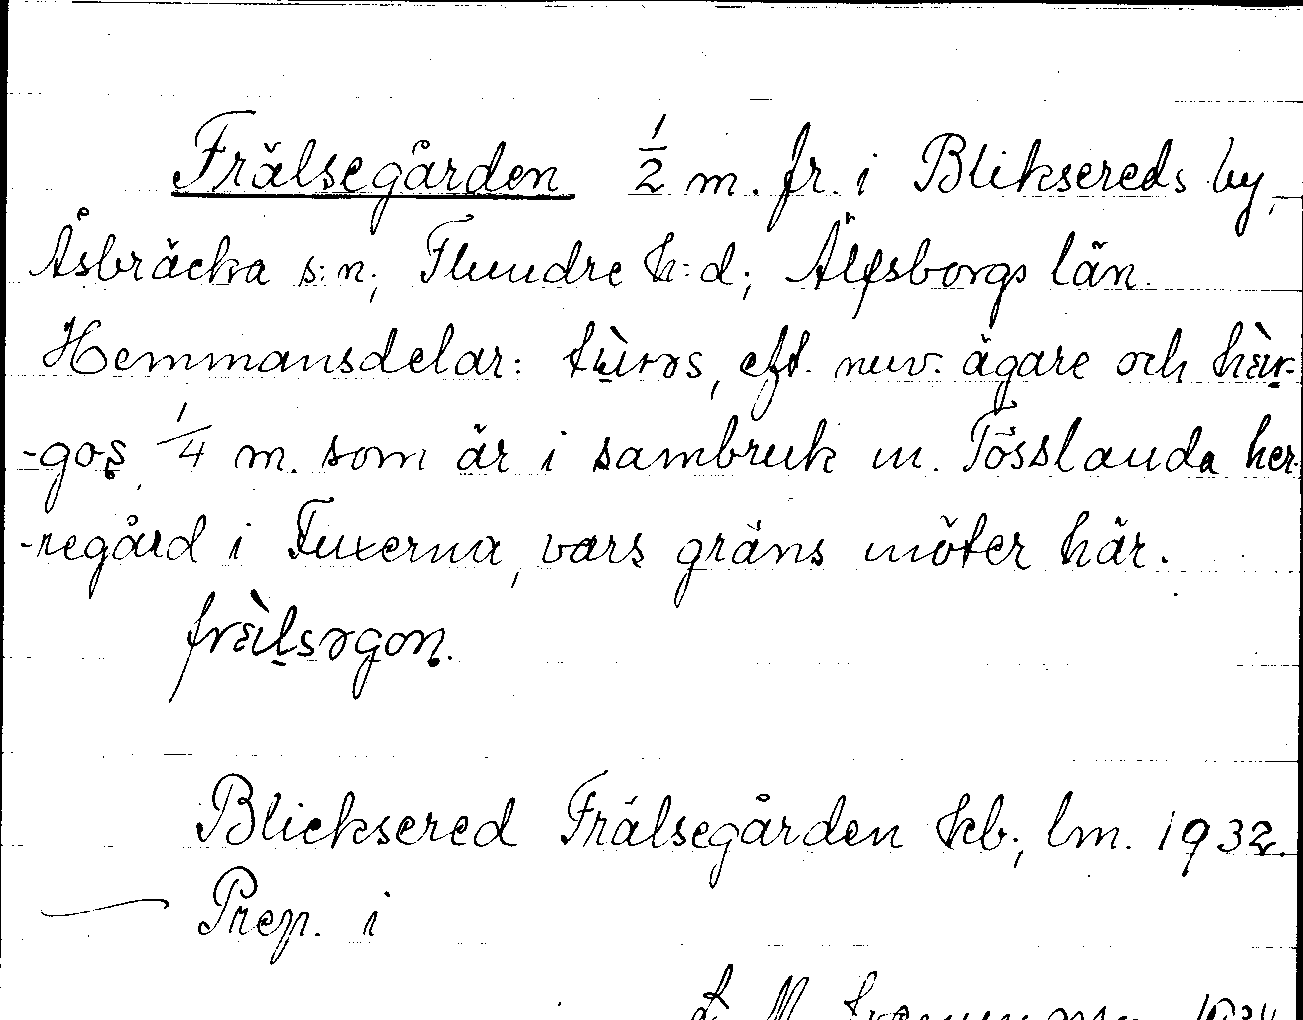 Frälsegården 1/2 m. fr. i Bliksereds by,
Åsbräcka s:n; Flundre h:d; Älfsborgs län.
Hemmansdelar: tùrəs, eft. nuv. ägare och hàr-
-gos, 1/4 m. som är i sambruk m. Tösslanda her-
-regård i Fuxerna, vars gräns möter här.
frälsəgon.
Blicksered Frälsegården kb; lm. 1932.
Prep. i